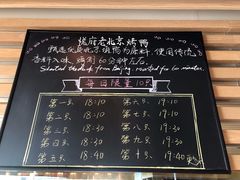 缤府老北京烤鸭
精选优质北京填鸭为原料，使用传统
香料入味 焗制60分钟左右
Selected the duck from Beijing roasted for 60 minutes.
每日限量10只
第一只 18:10 第六只 19:10
第二只 18:10 第七只 19:10
第三只 18:40 第八只 19:10
第四只 18:40 第九只 19:40
第五只 18:40 第十只 19:40